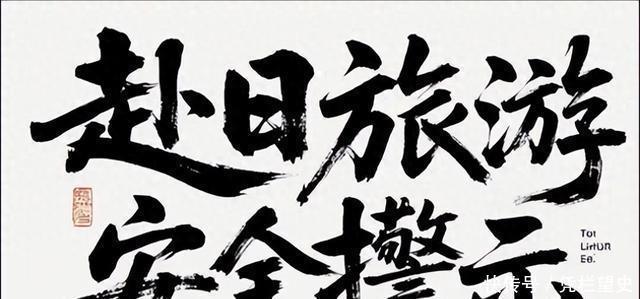 赴日旅游
安全警示
Tot
LirtUR
Ee.
快传号/凭栏望史